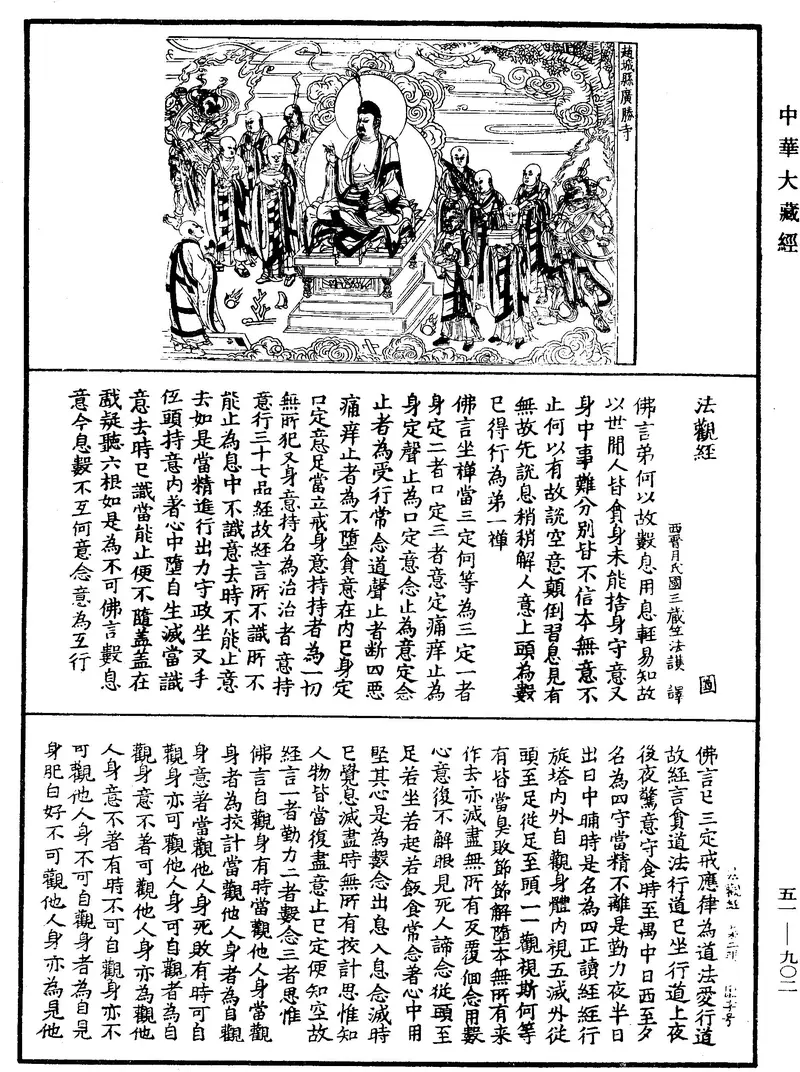 中華大藏經
趙城縣廣勝寺
法觀經
西晉月氏國三藏竺法護 譯
佛言弟何以故數息用息輕易知故
以世間人皆貪身未能捨身守意又
身中事難分別皆不信本無意不
止何以有故說空意顛倒習息見有
無故先說息稍稍解人意上頭為數
已得行為第一禪
佛言坐禪當三定何等為三定一者
身定二者口定三者意定痛痒止為
身定聲止為口定意念止為意定念
止者為受行常念道聲止者斷四惡
痛痒止者為不墮貪意在內已身定
口定意足當立戒身意持持者為一切
無所犯又身意持名為治治者意持
意行三十七品經故經言所不識所不
能止為息中不識意去時不能止意
去如是當精進行出力守政坐叉手
低頭持意內著心中墮自生滅當識
意去時已識當能止便不隨蓋蓋在
戲疑聽六根如是為不可佛言數息
意今息數不互何意念意為互行
佛言已三定戒應律為道法愛行道
故經言貪道法行道已坐行道上夜
後夜驚意守食時至禺中日西至夕
名為四守當精不離是勤力夜半日
出日中晡時是名為四正讀經經行
旋塔內外自觀身體內視五滅外從
頭至足從足至頭一一觀視斯何等
有皆當臭敗節節解墮本無所有來
作去亦滅盡無所有反覆佪念用數
心意復不解眼見死人諦念從頭至
足若坐若起若飯食常念著心中用
堅其心是為數念出息入息念滅時
已覺息滅盡時無所有挍計思惟知
人物皆當復盡意止已定便知空故
經言一者勤力二者數念三者思惟
佛言自觀身有時當觀他人身當觀
身者為挍計當觀他人身者為自觀
身意著當觀他人身死敗有時可自
觀身亦可觀他人身可自觀者為自
觀身意不著可觀他人身亦為觀他
人身意不著有時不可自觀身亦不
可觀他人身不可自觀身者為自見
身肥白好不可觀他人身亦為見他
五一—九〇二